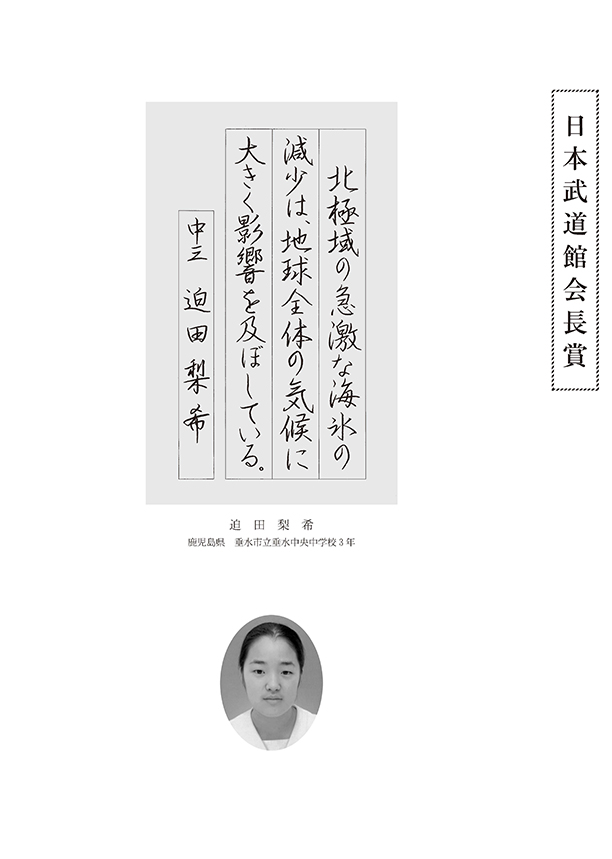 日本武道館会長賞
北極域の急激な海氷の
減少は、地球全体の気候に
大きく影響を及ぼしている。
中三 迫田梨希
迫田梨希
鹿児島県 垂水市立垂水中央中学校3年